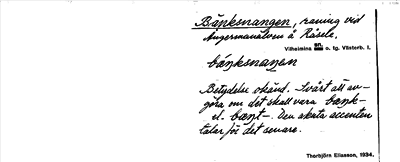 Bänksnangen, raning vid
Ångermanälven å Råsele.
Vilhelmina sn. o. tg. Västerb. l.
bánksnaŋen
Betydelse okänd. Svårt att av-
göra om det skall vara bænk-
el. bænt-. Den akuta accenten
talar för det senare.
Thorbjörn Eliasson, 1934.